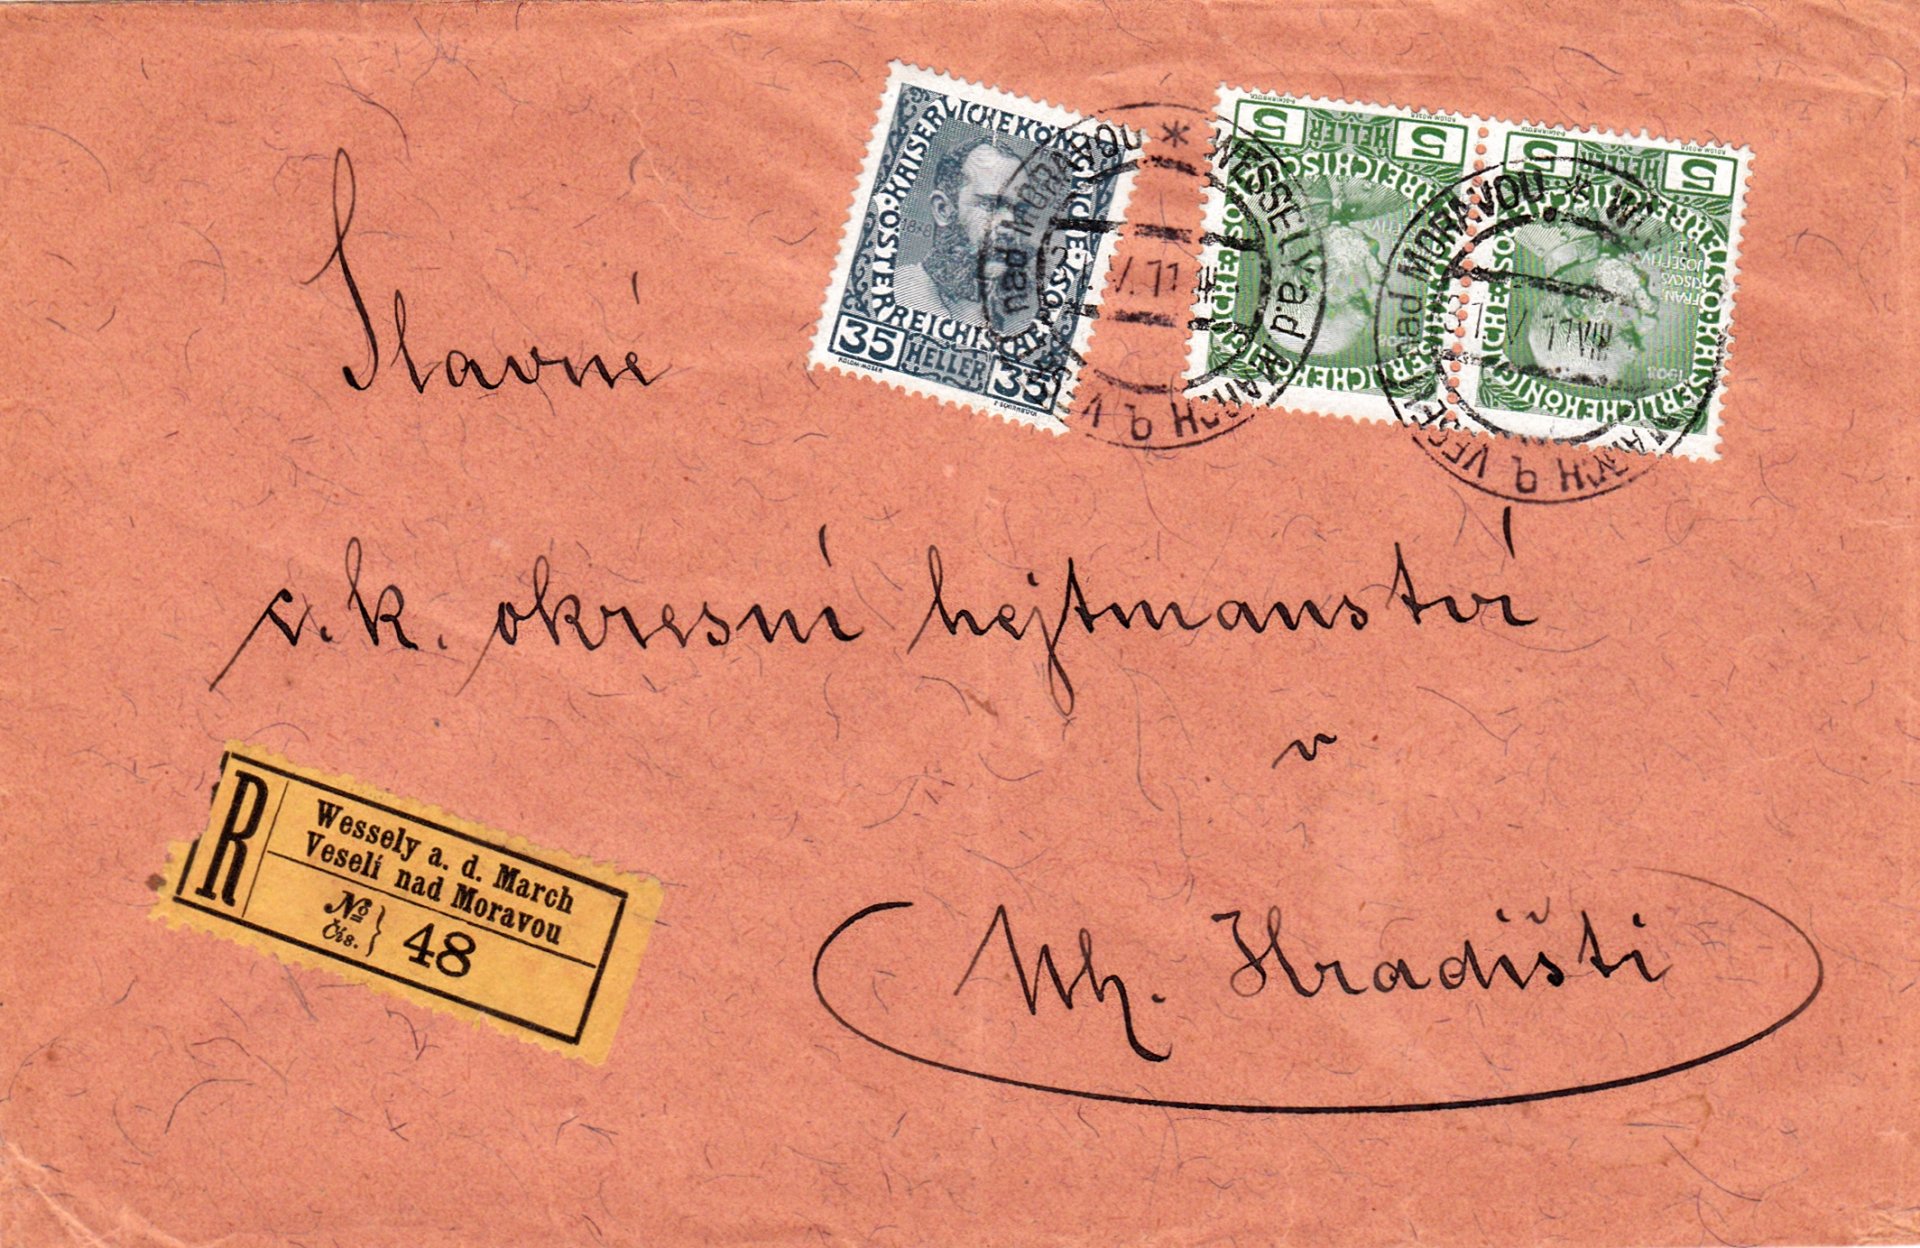 KAISERLICHE KÖNIGLICHE POST ÖSTERREICHISCHE
1848
35 HELLER 35
KOLOM·MOSER
5 HELLER 5
5 HELLER 5
KAISERLICHE KÖNIGLICHE ÖSTERREICHISCHE
FRAN
CISCVS
JOSEPHVS
1908
WESSELY a.d. MARCH b VESELÍ nad MORAVOU *
V. 11
WESSELY a.d. MARCH b VESELÍ nad MORAVOU *
V 11 VIII
Slavné
c. k. okresní hejtmanství
v
Uh. Hradišti
R
Wessely a. d. March
Veselí nad Moravou
No
Čís. } 48